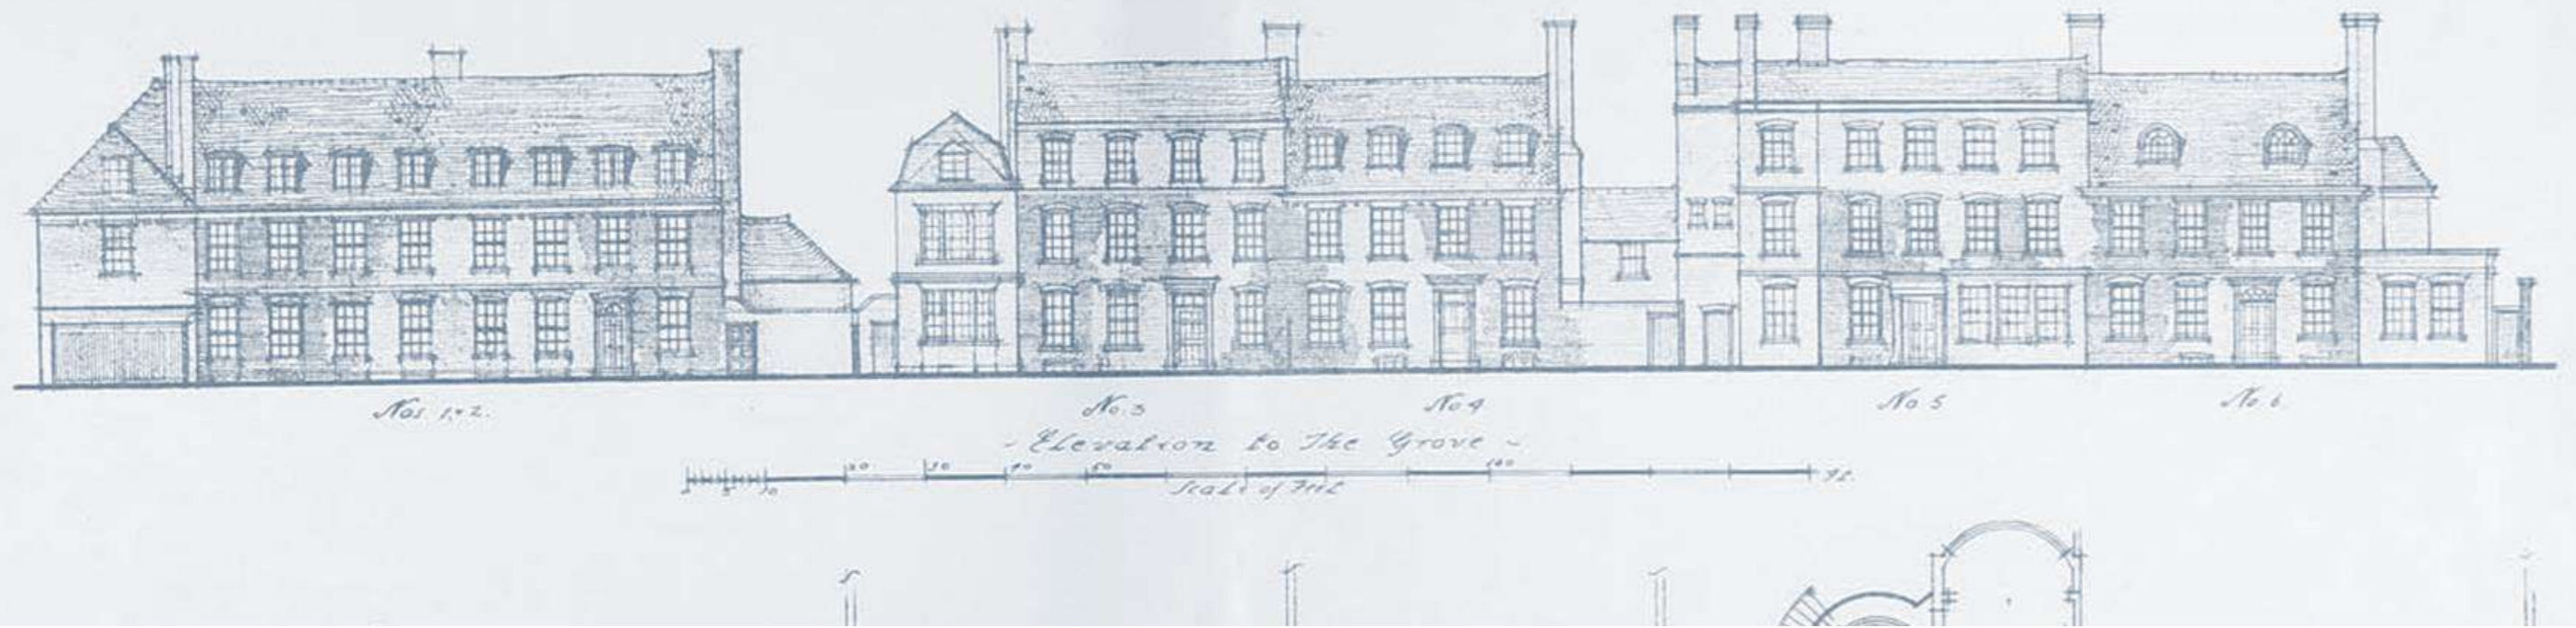 Nos 1 & 2.
No. 3
No 4
No 5
No 6.
- Elevation to The Grove -
20 30 40 50 100
0 5 10
Scale of Feet